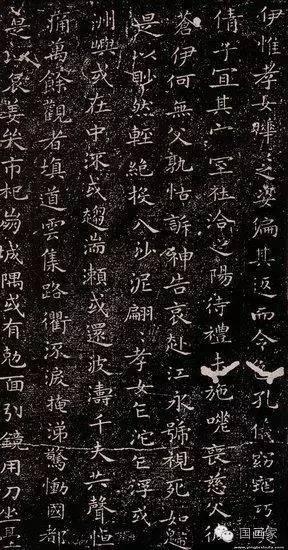 伊惟孝女曄〻之姿偏其返而令色孔儀窈窕巧
倩兮宜其家室在洽之陽待禮未施嗟喪慈父彼
蒼伊何無父孰怙訴神告哀赴江永號視死如歸
是以眇然輕絕投入沙泥翩〻孝女乍沉乍浮或
洲嶼或在中流或趨湍瀨或還波濤千夫共聲悼
痛萬餘觀者填道雲集路衢流淚掩涕驚慟國都
是以哀姜哭市杞崩城隅或有剋面引鏡用刀坐臺
国画家